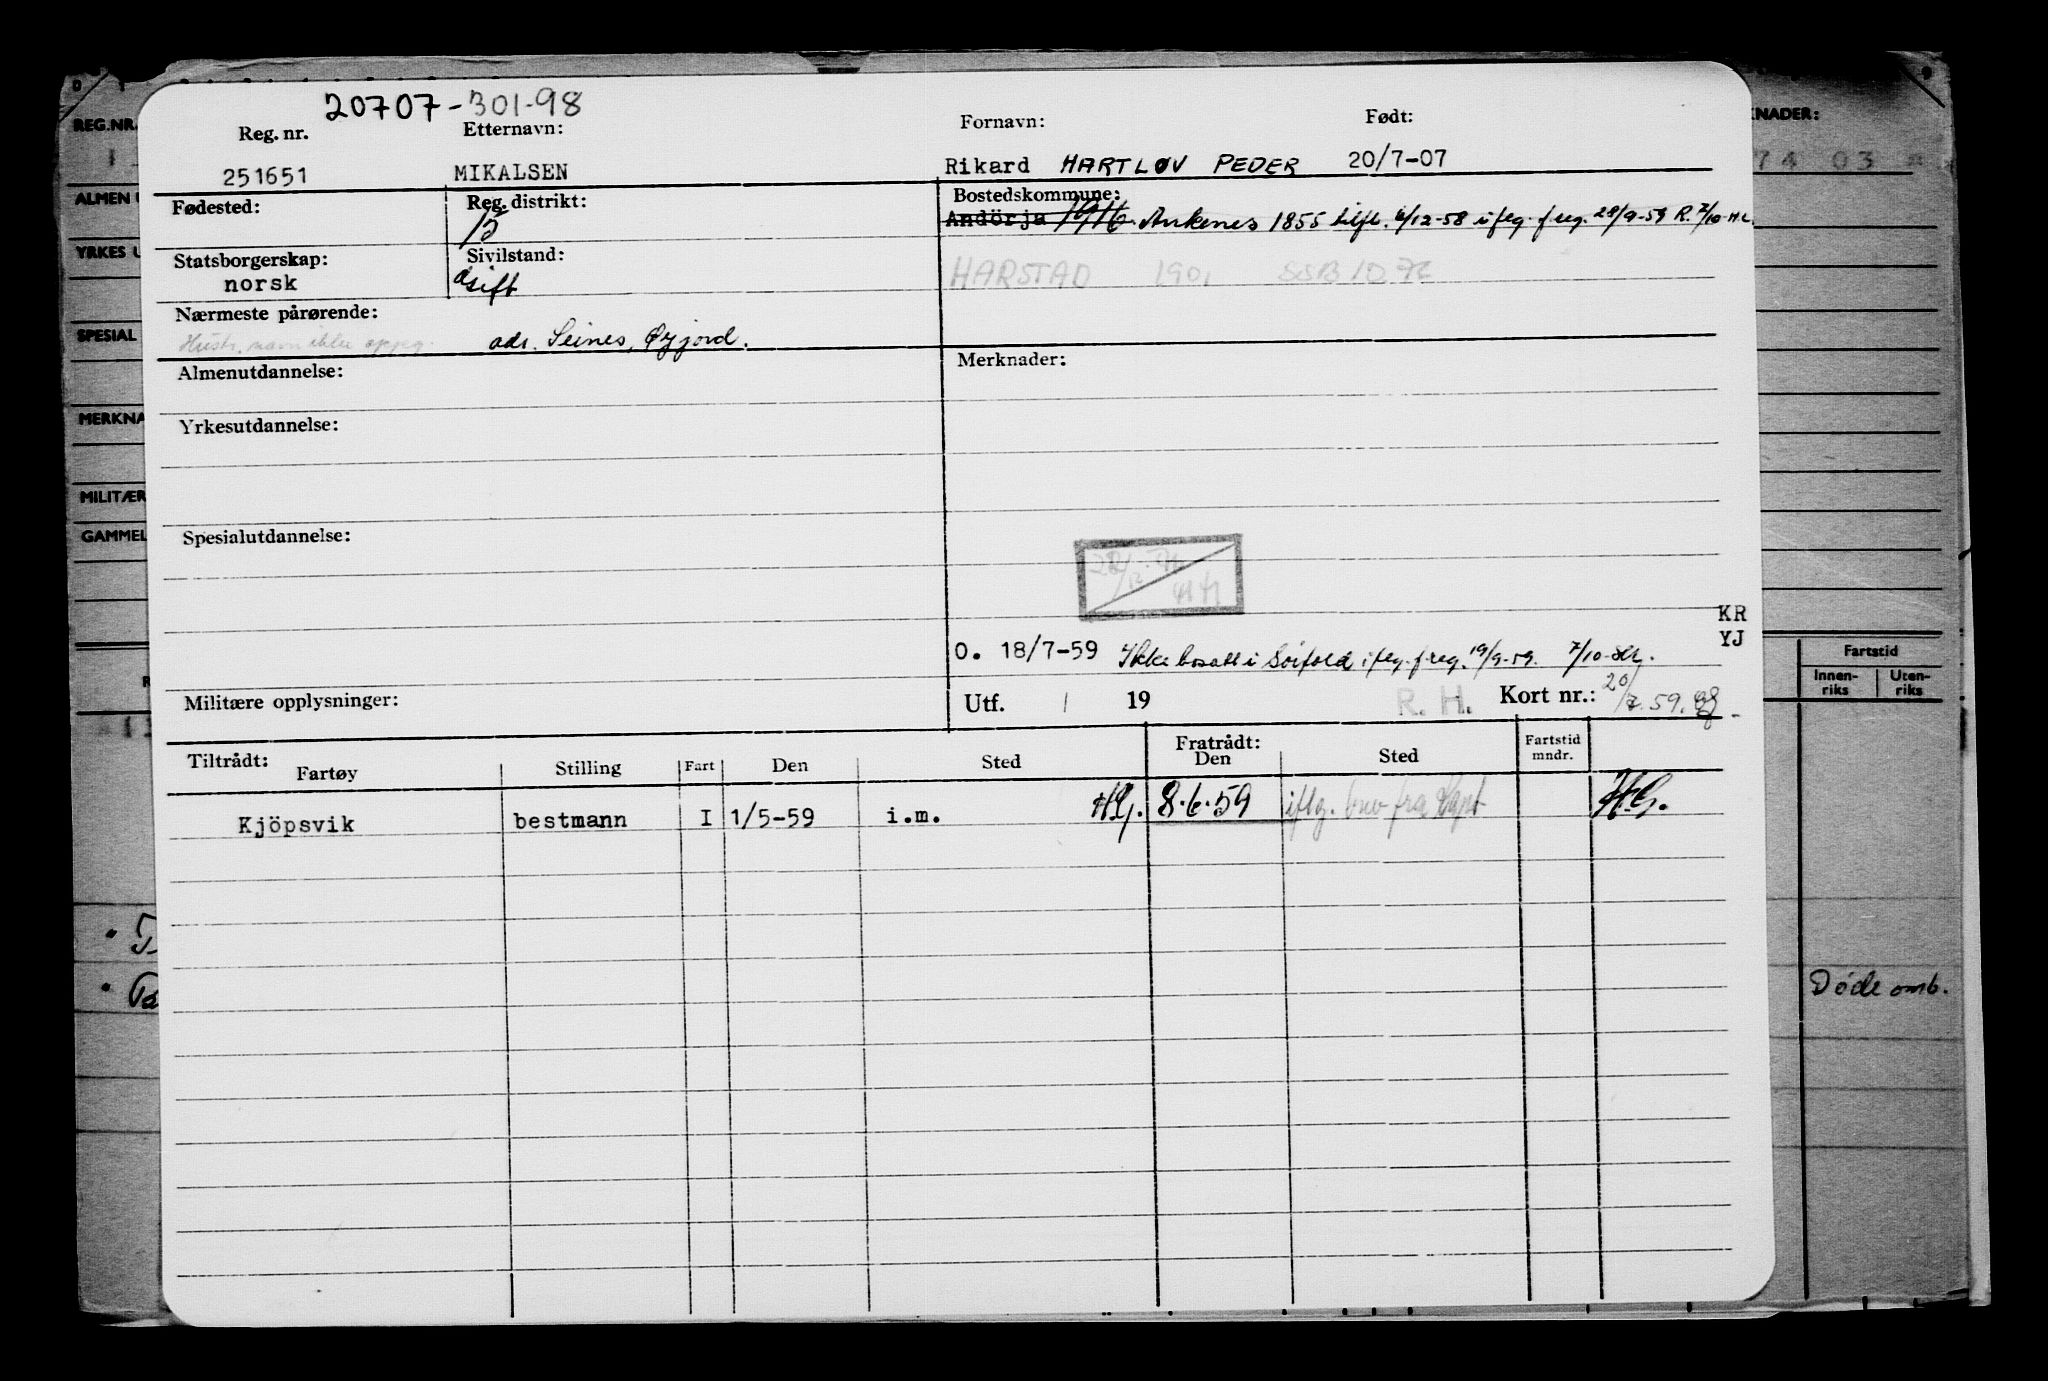 20707-301-98
Reg. nr. Etternavn: Fornavn: Født:
251651 MIKALSEN Rikard HARTLØV PEDER 20/7-07
Fødested: Reg. distrikt: Bostedskommune:
Andörja 1916 Ankenes 1855 tilfl. 6/12-58 iflg. f.reg. 28/9-59 R. 7/10 H.L.
Statsborgerskap: Sivilstand:
norsk gift HARSTAD 1901 SSB 10
Nærmeste pårørende:
Hustr. navn ikke oppg. adr. Seines, Øyjord.
Almenutdannelse: Merknader:
Yrkesutdannelse:
Spesialutdannelse:
KR
YJ
O. 18/7-59 Ikke bosatt i Sörfold iflg. f.reg. 19/9-59. 7/10
Militære opplysninger: Utf. / 19 R. H. Kort nr.: 20/7.59.
Tiltrådt: Fratrådt:
Fartøy Stilling Fart Den Sted Den Sted Fartstid mndr.
Kjöpsvik bestmann I 1/5-59 i.m. HG. 8.6.59 iflg. fra H.G.
REG.NR.
ALMEN U
YRKES U
SPESIAL
MERKNA
MILITÆR
GAMMEL
KNADER:
74 03
Fartstid
Innen-riks Uten-riks
Døde omb.